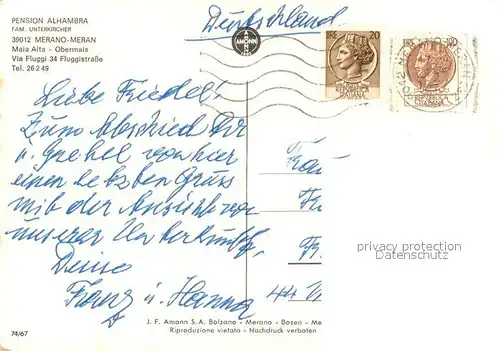 PENSION ALHAMBRA
FAM. UNTERKIRCHER
39012 MERANO-MERAN
Maia Alta - Obermais
Via Fluggi 34 Fluggistraße
Tel. 26249
Deutschland
AMONN
20
REPUBBLICA
ITALIANA
REPUBBLICA
ITALIANA
Liebe Friedel!
Zum Abschied Dir
u. von hier
einen letzten Gruss
mit der Ansicht von
unserer Unterkunft,
Deine
Franz u. Hanna
Frau
Fr
44
privacy protection
74/67
J. F. Amonn S. A. Bolzano - Merano - Bozen - Me
Riproduzione vietata - Nachdruck verboten